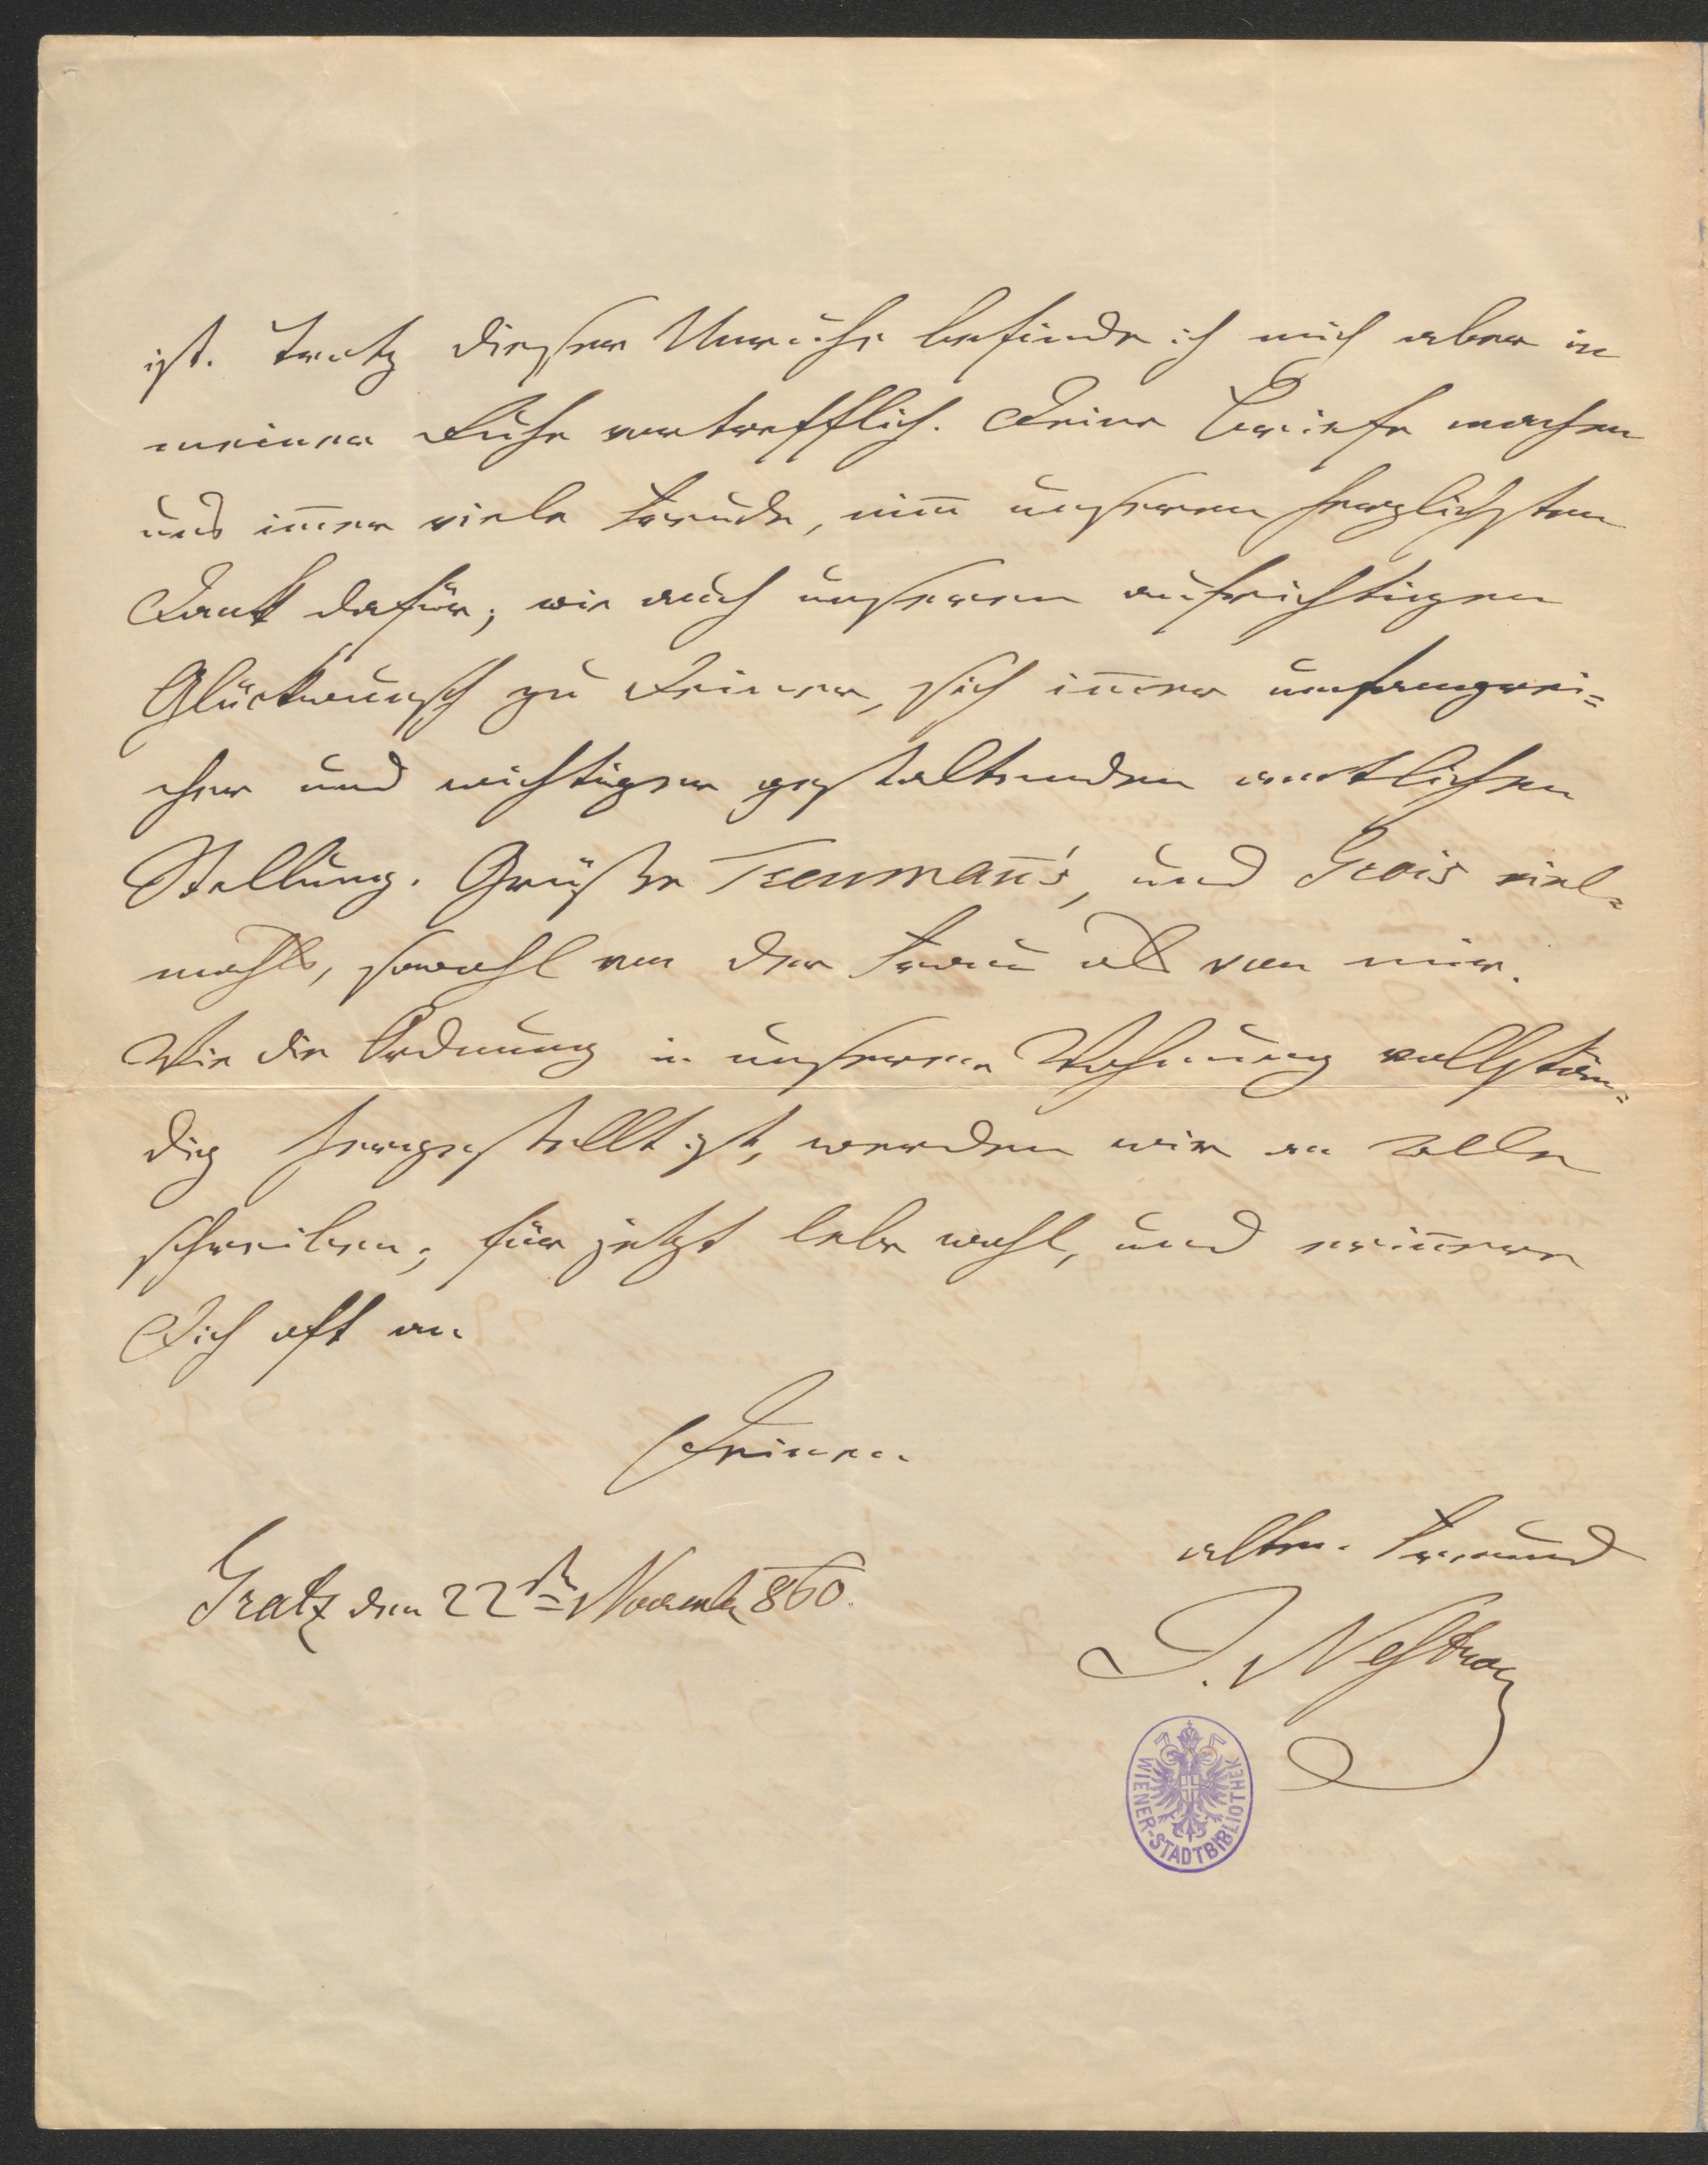 ist. Trotz dieser Unruhe befinde ich mich aber in
meiner Ruhe vortrefflich. Deine Briefe machen
uns im̅er viele Freude, nim̅ unseren herzlichsten
Dank dafür; wie auch unseren aufrichtigen
Glückwunsch zu Deiner, sich im̅er umfangrei=
cher und wichtiger gestaltenden amtlichen
Stellung. Grüße Treuman̅'s, und Grois viel=
mahls, sowohl von der Frau als von mir.
Wie die Ordnung in unserer Wohnung vollstän=
dig hergestellt ist, werden wir an Alle
schreiben; für jetzt lebe wohl, und erin̅ere
Dich oft an
Deinen
alten Freund
Gratz den 22ten November 860.
J. Nestroy
WIENER-STADTBIBLIOTHEK